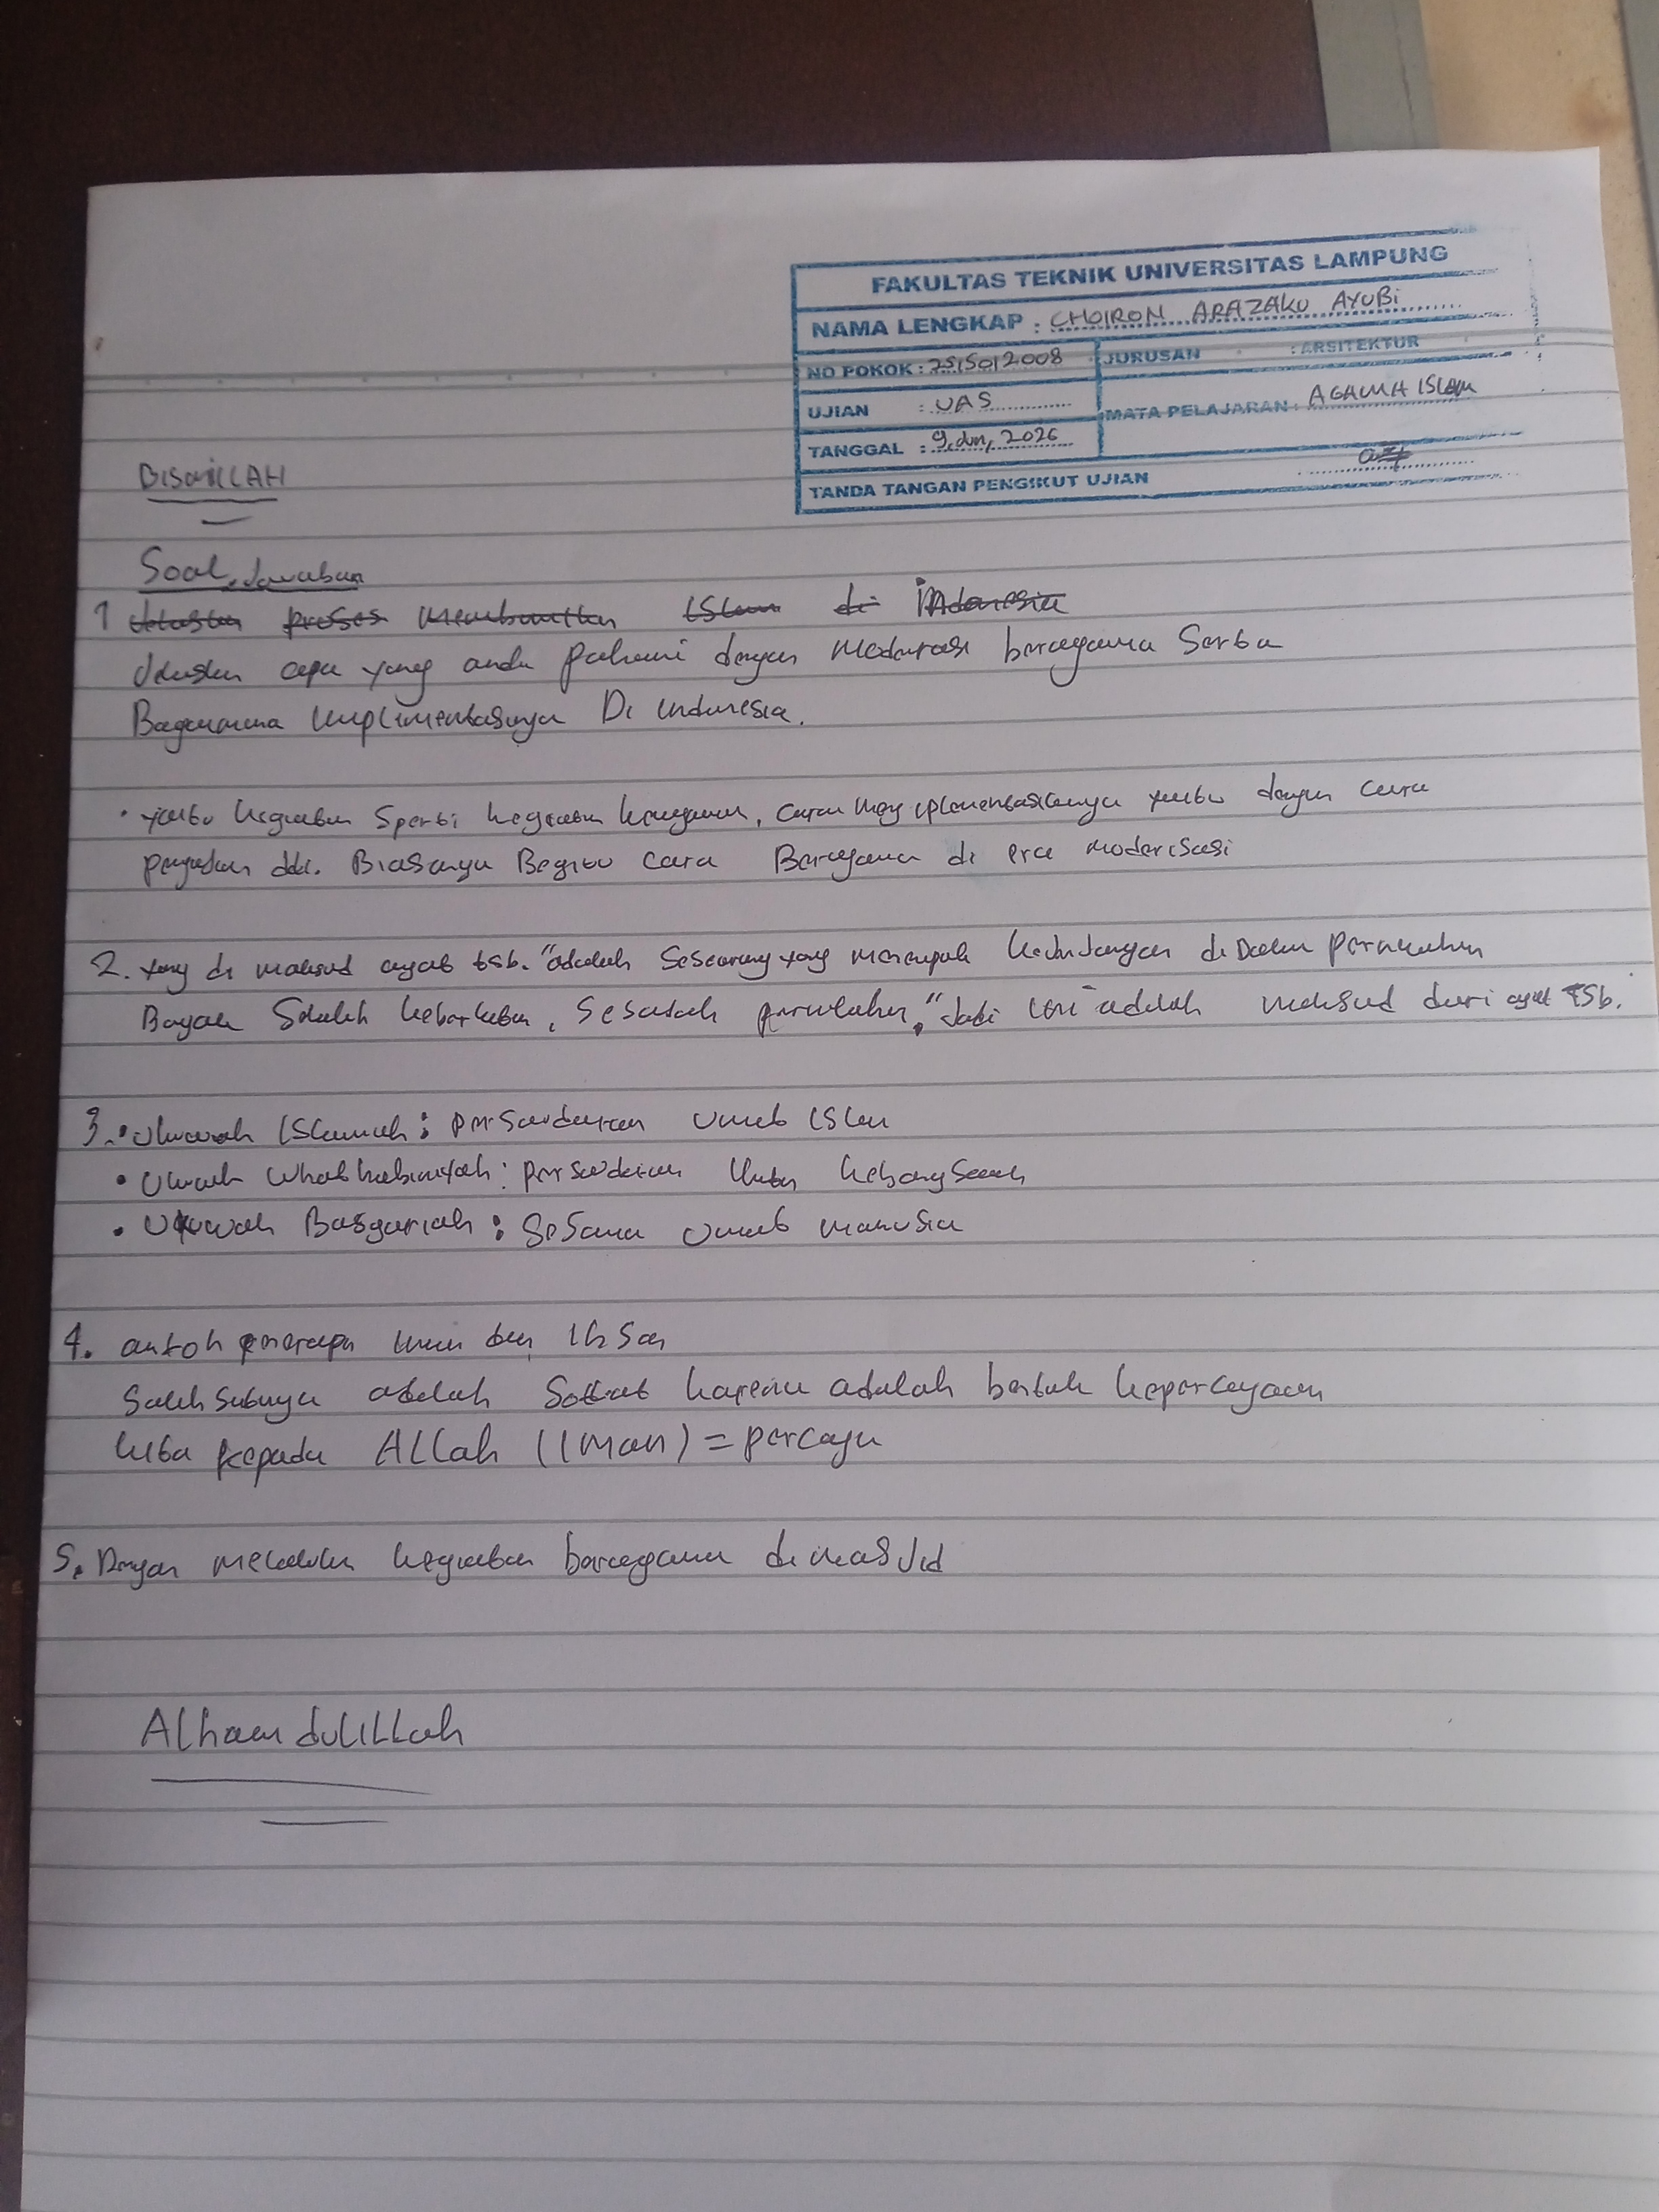 FAKULTAS TEKNIK UNIVERSITAS LAMPUNG
NAMA LENGKAP : CHOIRON ARAZAKU AYUBi
NO POKOK : 2515012008 JURUSAN : ARSITEKTUR
UJIAN : UAS
MATA PELAJARAN : AGAMA ISLAM
TANGGAL : 9, Jun, 2026
TANDA TANGAN PENGIKUT UJIAN
BISMILLAH
Soal, Jawaban
1 Jelaskan proses Islam di indonesia
Jelaskan apa yang anda pahami dengan Moderasi beragama Serta
Bagaimana implimentasinya Di indonesia.
• yaitu kegiatan Sperti kegiatan keagamaan, cara yaitu dengan cara
pengajian dll. Biasanya Begitu cara Beragama di era moderisasi
2. Yang di maksud ayat tsb. "adalah Seseorang yang di Dalam pernikahan
Salah Sesudah pernikahan," Jadi ini adalah maksud dari ayat TSb.
3. • Ukuwah ISlamiah : perSaudaraan Umat ISlam
• Ukuwah Whathabiniyah : perSaudaraan kebangSaan
• Ukuwah BaSyariah : SeSama Umat manuSia
4. contoh penerapan iman dan IhSan
Salah Satunya adalah Solat karena adalah bentuk kepercayaan
kita kepada ALLah (Iman) = percaya
5. Dengan melakukan kegiatan beragama di masJid
AlhamdulILLah